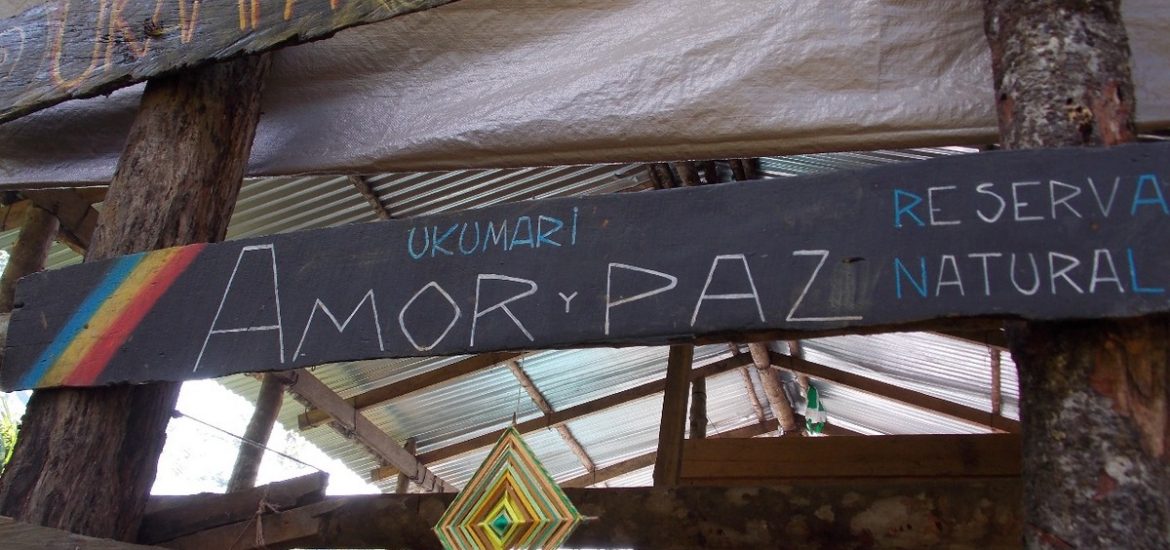 UKUMARI
AMOR Y PAZ
RESERVA
NATURAL